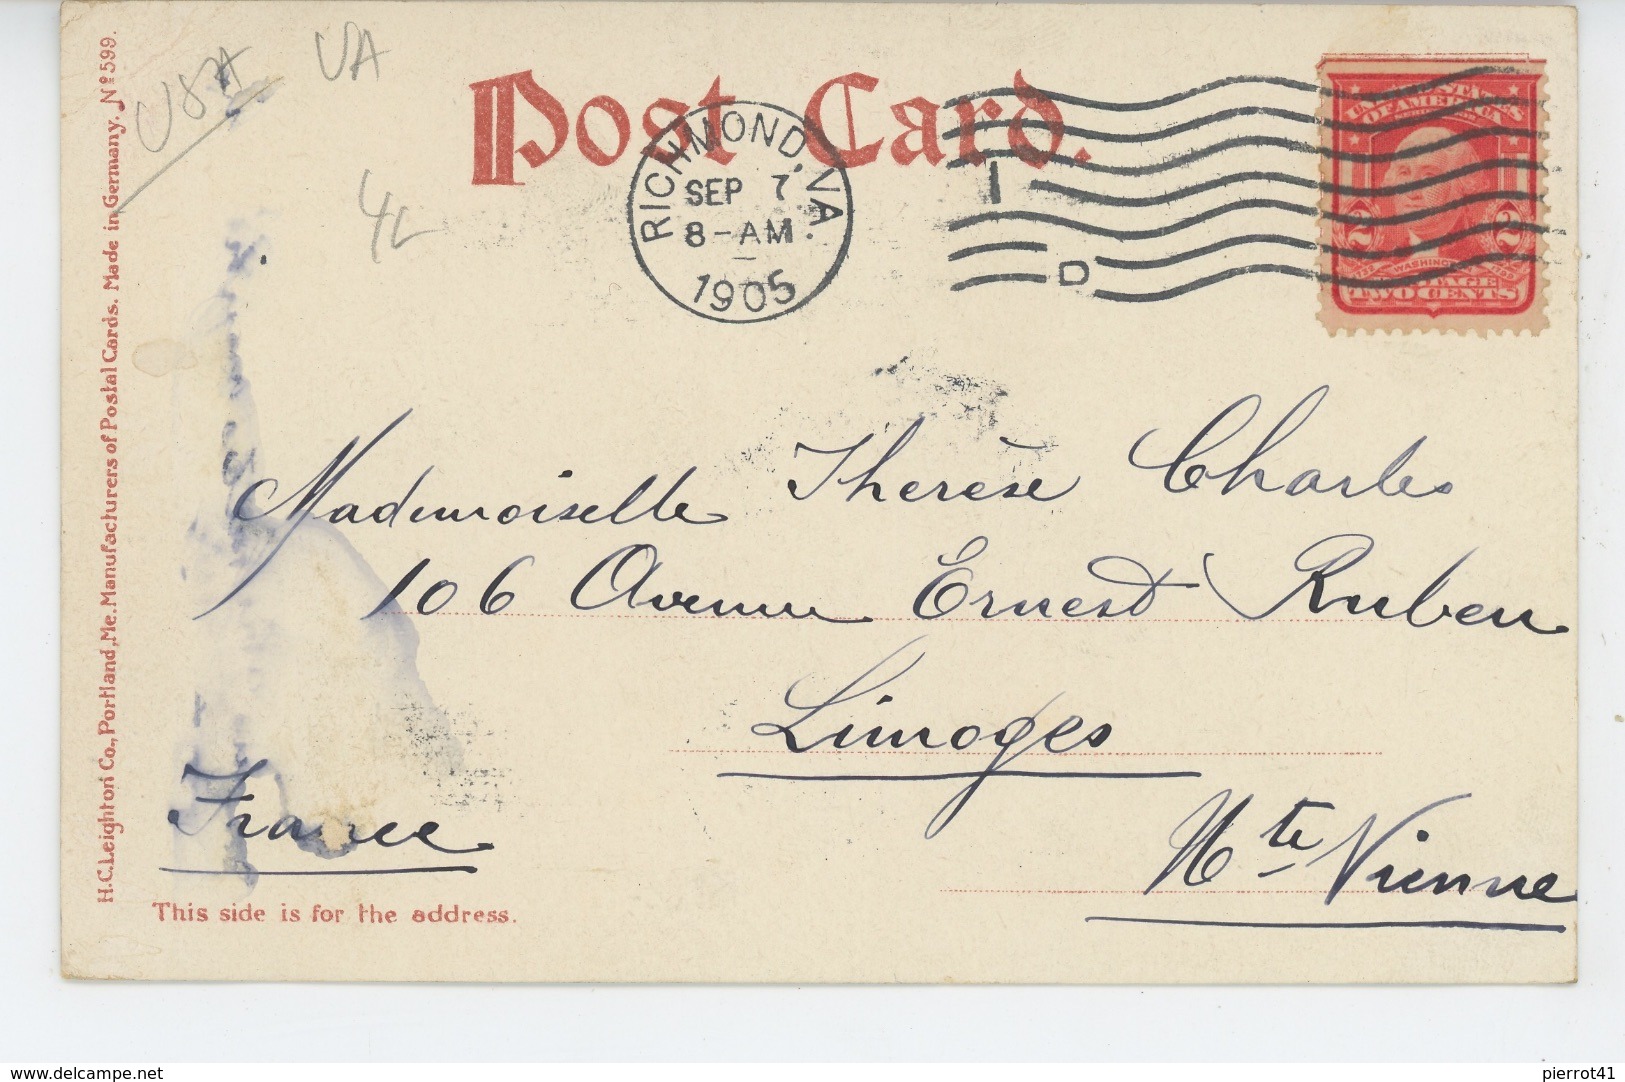 USA
VA
4L
Post Card.
RICHMOND, VA.
SEP 7
8-AM
1905
1
D
UNITED STATES
OF AMERICA
2 2
1732 WASHINGTON 1799
TWO CENTS
Mademoiselle Therèse Charles
106 Avenue Ernest Ruben
Limoges
France
Hte Vienne
This side is for the address.
H.C. Leighton Co., Portland, Me. Manufacturers of Postal Cards. Made in Germany. Nº 599.
www.delcampe.net
pierrot41